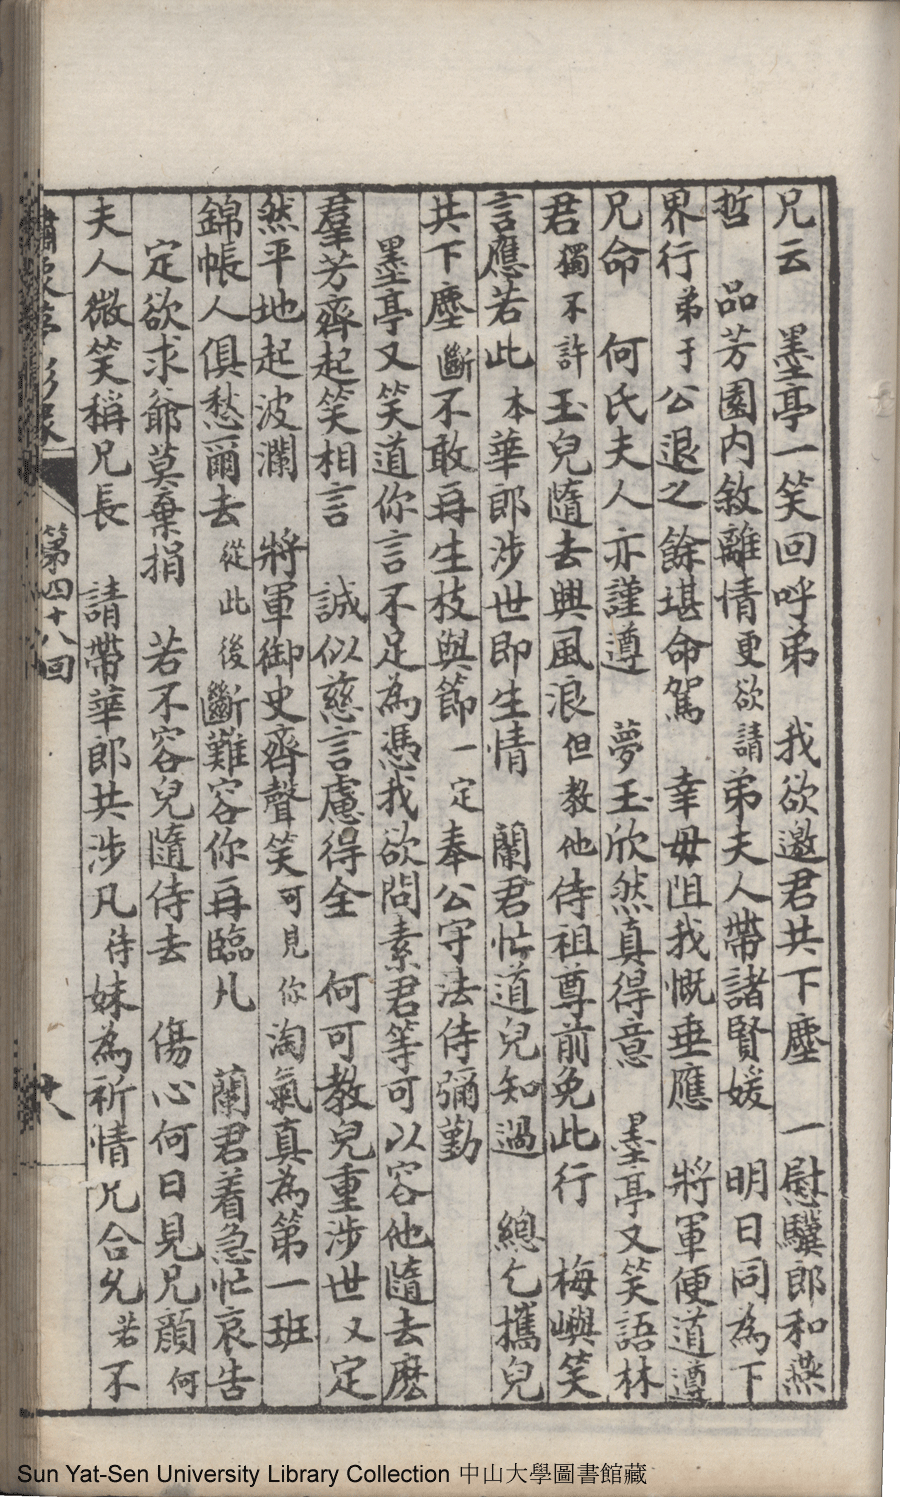 兄云　墨亭一笑回呼弟　我欲邀君共下塵　一慰驥郎和燕
哲　品芳園内敘離情更欲請弟夫人帶諸賢媛　明日同為下
界行弟于公退之餘堪命駕　幸毋阻我慨垂應　將軍便道遵
兄命　何氏夫人亦謹遵　夢玉欣然真得意　墨亭又笑語林
君獨不許玉兒隨去興風浪但教他侍祖尊前免此行　梅嶼笑
言應若此本華郎涉世即生情　蘭君忙道兒知過　總乞攜兒
共下塵斷不敢再生枝與節一定奉公守法侍彌勤
墨亭又笑道你言不足為憑我欲問素君等可以容他隨去麽
羣芳齊起笑相言　誠似慈言慮得全　何可教兒重涉世又定
然平地起波瀾　將軍御史齊聲笑可見你淘氣真為第一班
錦帳人俱愁爾去從此後斷難容你再臨凡　蘭君着急忙哀告
定欲求爺莫棄捐　若不容兒隨侍去　傷心何日見兄顏何
夫人微笑稱兄長　請帶華郎共涉凡待妹為祈情允合允若不
第四十八回
廿八
Sun Yat-Sen University Library Collection 中山大學圖書館藏